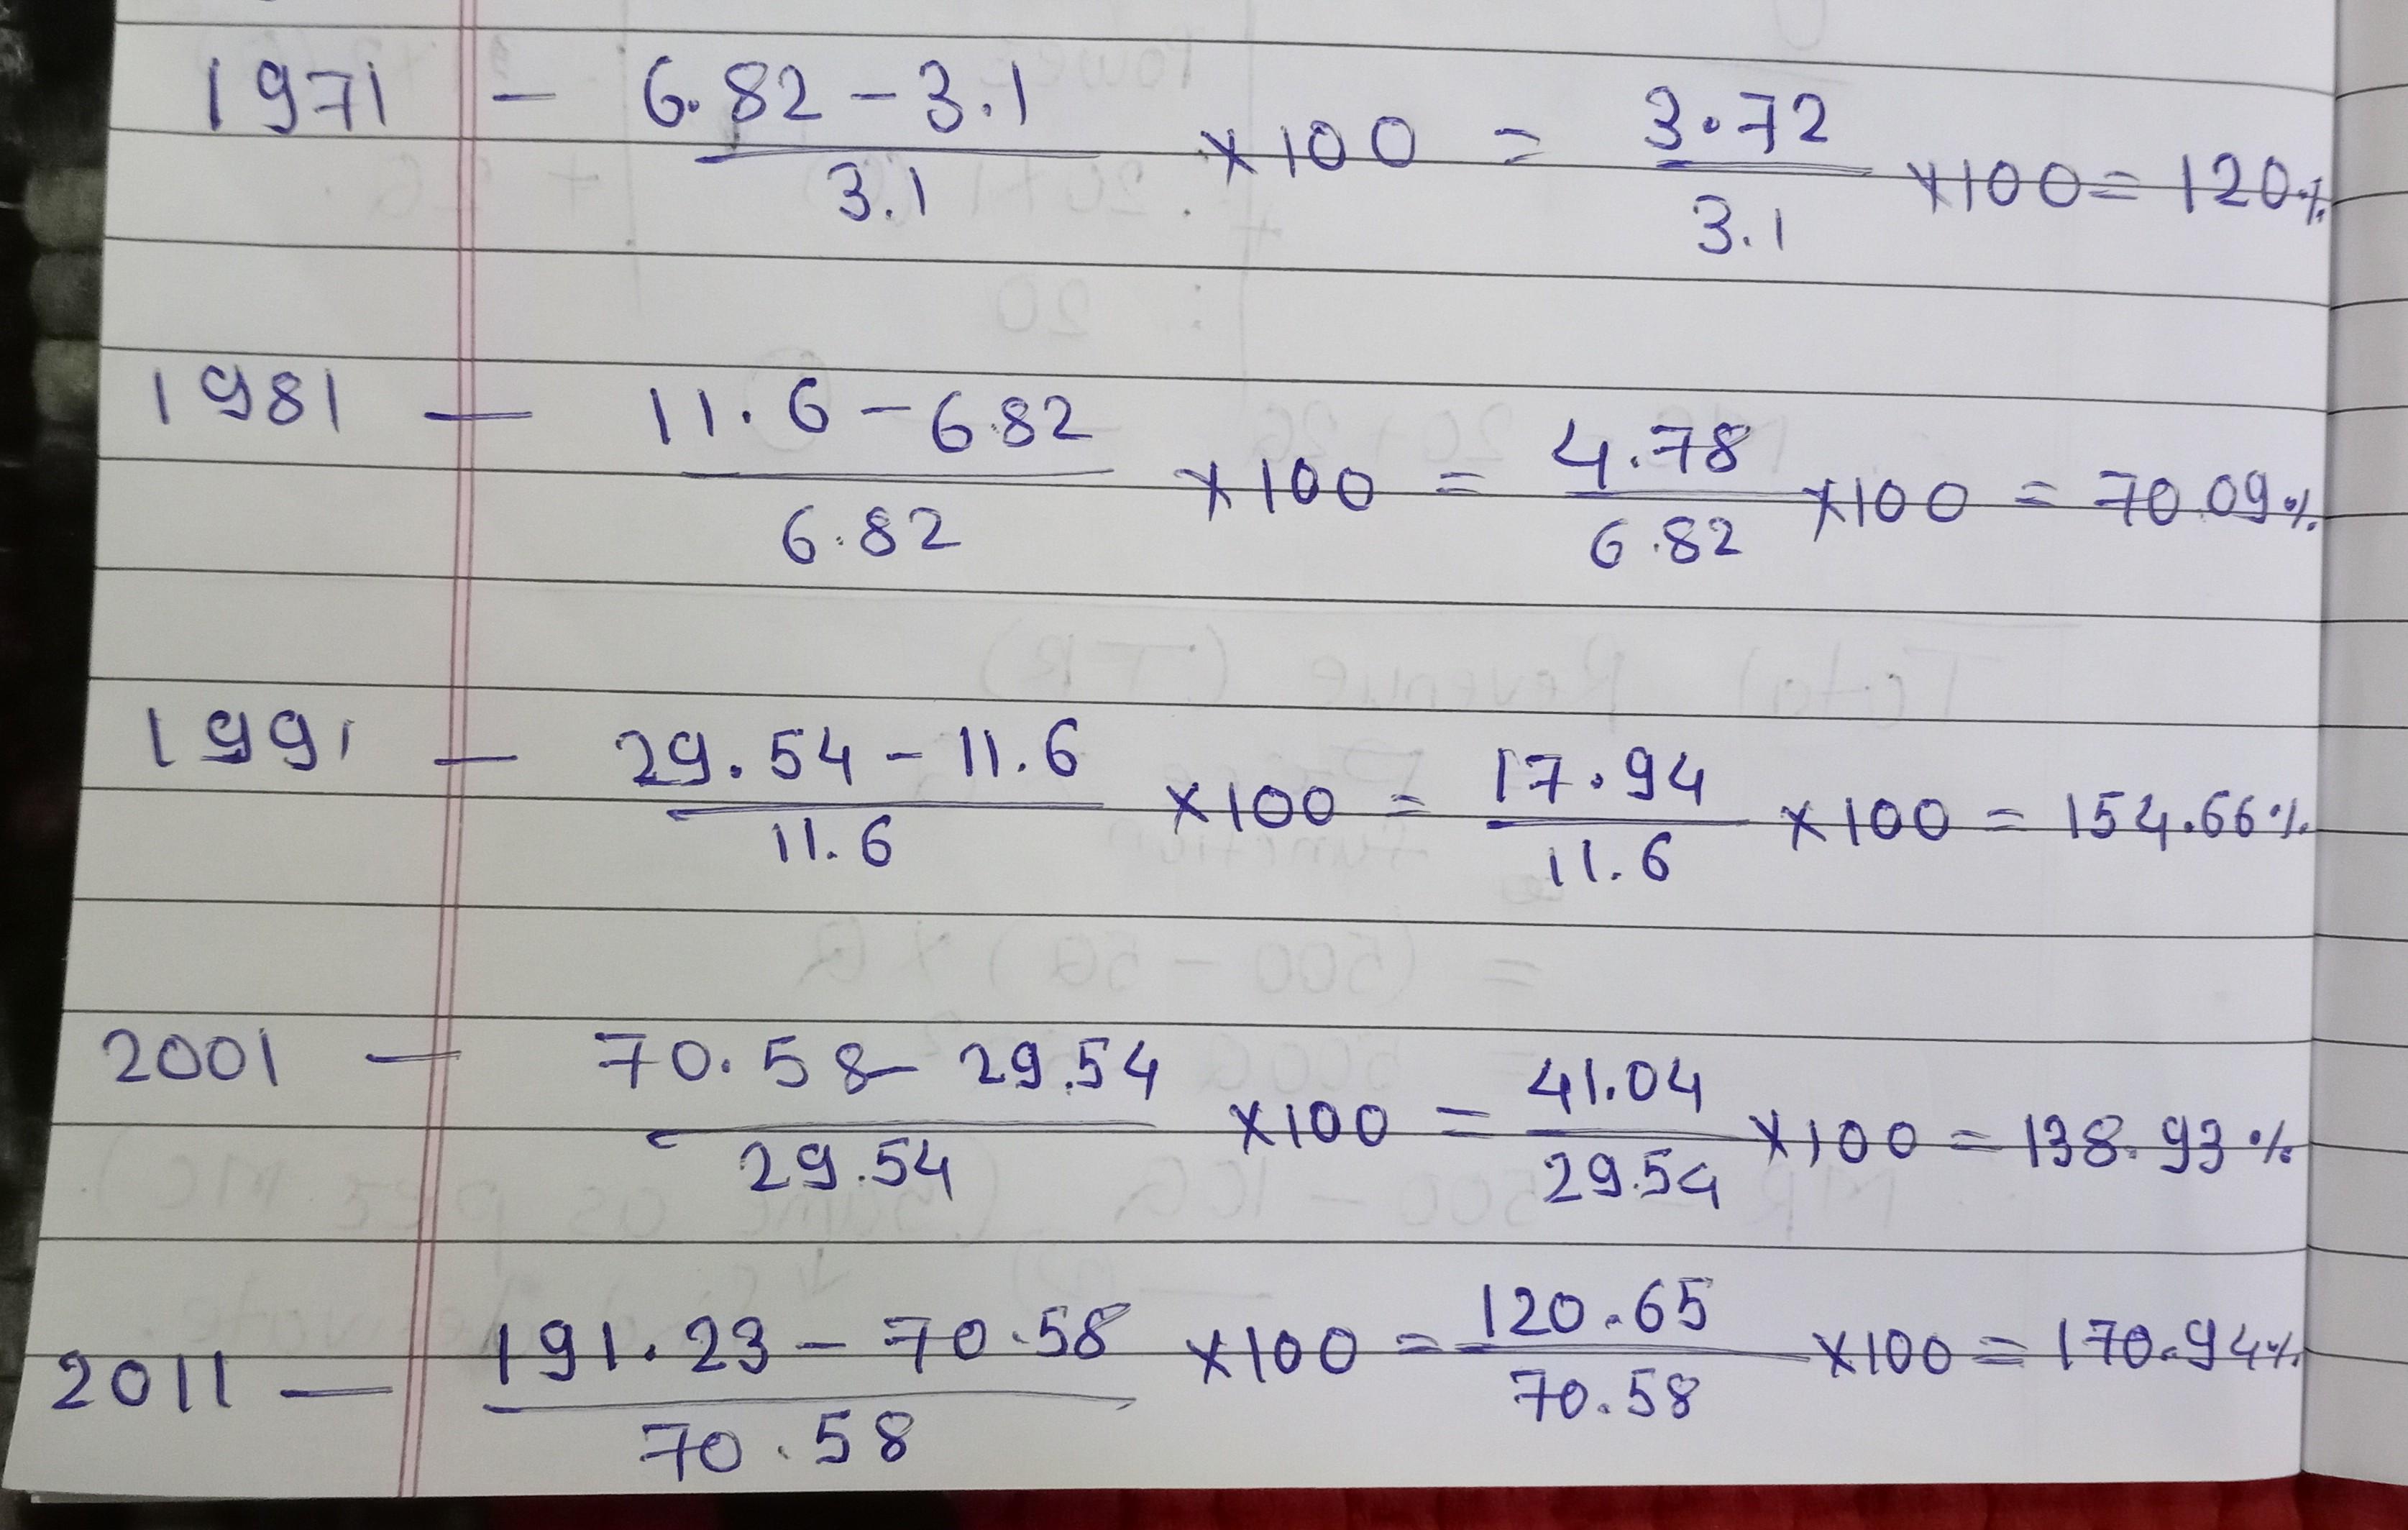 1971 – 6.82 – 3.1 / 3.1 ×100 = 3.72 / 3.1 ×100 = 120%
1981 – 11.6 – 6.82 / 6.82 ×100 = 4.78 / 6.82 ×100 = 70.09%
1991 – 29.54 – 11.6 / 11.6 ×100 = 17.94 / 11.6 ×100 = 154.66%
2001 – 70.58 – 29.54 / 29.54 ×100 = 41.04 / 29.54 ×100 = 138.93%
2011 – 191.23 – 70.58 / 70.58 ×100 = 120.65 / 70.58 ×100 = 170.94%